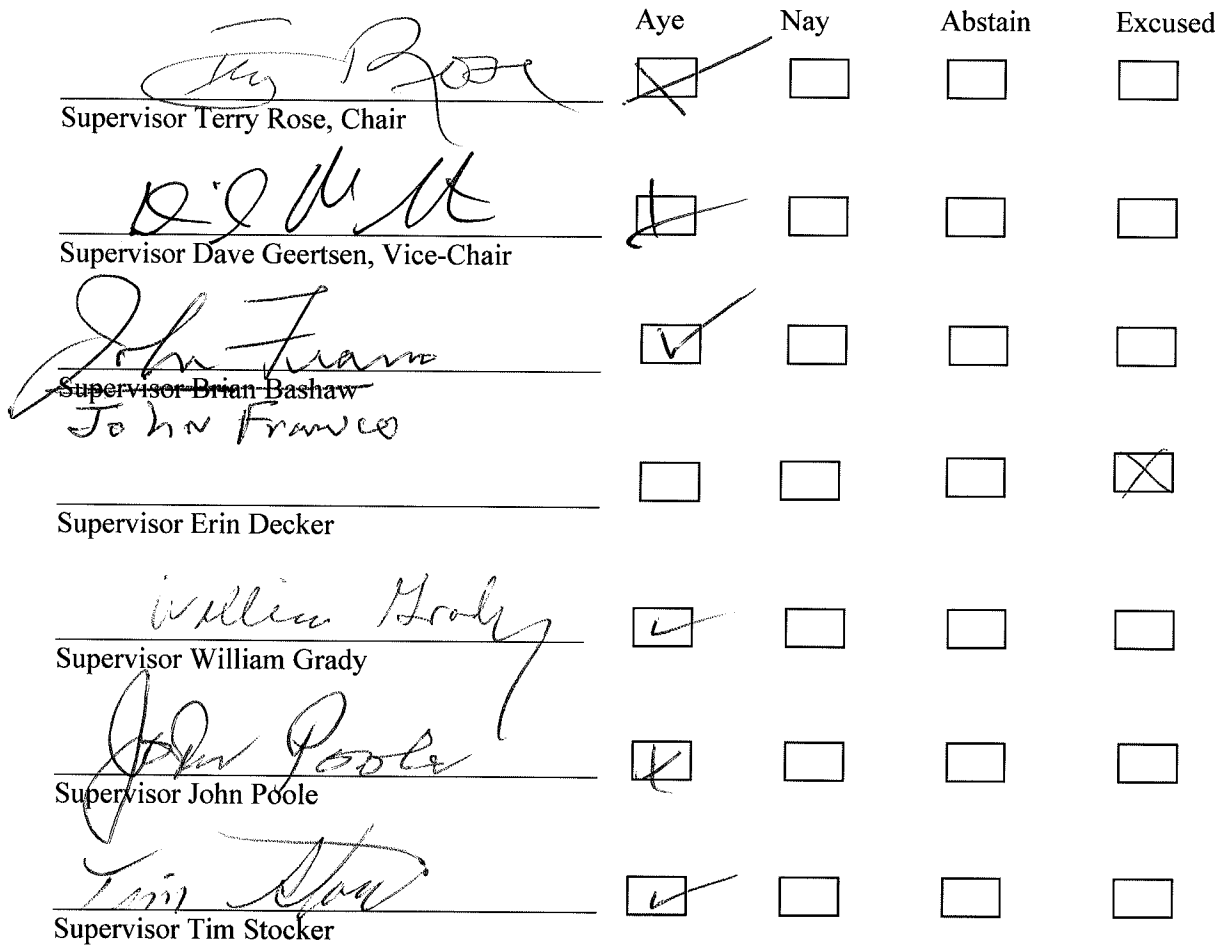 Aye Nay Abstain Excused
Terry Rose
Supervisor Terry Rose, Chair
Supervisor Dave Geertsen, Vice-Chair
John Franco
Supervisor Brian Bashaw
John Franco
Supervisor Erin Decker
William Grady
Supervisor William Grady
John Poole
Supervisor John Poole
Tim Stocker
Supervisor Tim Stocker